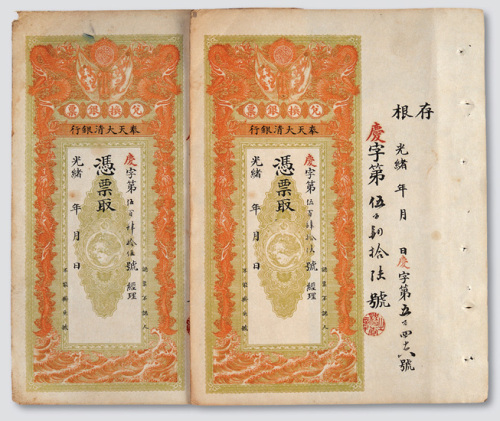 存根
光緒 年 月 日慶字第五百四十六號
慶字第伍百肆拾陸號
兌換銀票
奉天大清銀行
慶字第伍百肆拾陸號 經理
憑票取
光緒 年 月 日
認票不認人
兌換銀票
奉天大清銀行
慶字第伍百肆拾伍號 經理
憑票取
光緒 年 月 日
認票不認人